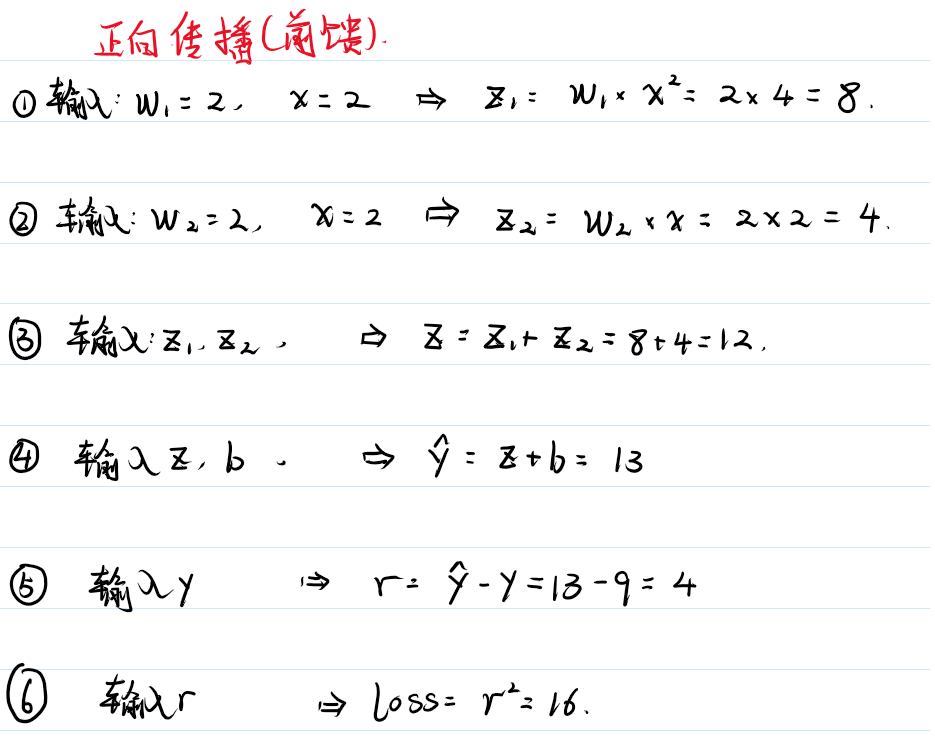 正向传播(前馈).
① 输入: w₁ = 2, x = 2 ⇒ z₁ = w₁ × x² = 2 × 4 = 8.
② 输入: w₂ = 2, x = 2 ⇒ z₂ = w₂ × x = 2 × 2 = 4.
③ 输入: z₁, z₂, ⇒ z = z₁ + z₂ = 8 + 4 = 12.
④ 输入 z, b. ⇒ ŷ = z + b = 13
⑤ 输入 y ⇒ r = ŷ - y = 13 - 9 = 4
⑥ 输入 r ⇒ loss = r² = 16.